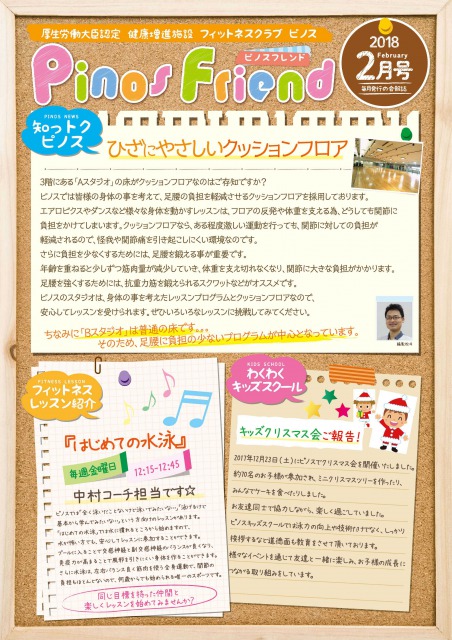 厚生労働大臣認定 健康増進施設 フィットネスクラブ ピノス
Pinos Friend
ピノスフレンド
2018
February
2月号
毎月発行の会報誌
PINOS NEWS
知っトク
ピノス
ひざにやさしいクッションフロア
3階にある「Aスタジオ」の床がクッションフロアなのはご存知ですか？
ピノスでは皆様の身体の事を考えて、足腰の負担を軽減させるクッションフロアを採用しております。
エアロビクスやダンスなど様々な身体を動かすレッスンは、フロアの反発や体重を支える為、どうしても関節に
負担をかけてしまいます。クッションフロアなら、ある程度激しい運動を行っても、関節に対しての負担が
軽減されるので、怪我や関節痛を引き起こしにくい環境なのです。
さらに負担を少なくするためには、足腰を鍛える事が重要です。
年齢を重ねると少しずつ筋肉量が減少していき、体重を支え切れなくなり、関節に大きな負担がかかります。
足腰を強くするためには、抗重力筋を鍛えられるスクワットなどがオススメです。
ピノスのスタジオは、身体の事を考えたレッスンプログラムとクッションフロアなので、
安心してレッスンを受けられます。ぜひいろいろなレッスンに挑戦してみてください。
ちなみに「Bスタジオ」は普通の床です。。。
そのため、足腰に負担の少ないプログラムが中心となっています。
FITNESS LESSON
フィットネス
レッスン紹介
『はじめての水泳』
毎週金曜日
12:15-12:45
中村コーチ担当です☆
ピノスでは「全く泳いだことないけど泳いでみたい…」「泳げるけど
基本から学んでみたい」という方向けのレッスンがあります。
「はじめての水泳」では水に慣れるところから始めますので、
水が怖い方でも、安心してレッスンに参加することができます。
プールに入ることで交感神経と副交感神経のバランスが良くなり、
免疫力が高まることで風邪を引きにくい身体を作ることができます。
さらに水泳は、左右バランス良く筋肉を使う全身運動で、関節の
負担もほとんどないので、何歳からでも始められる唯一のスポーツです。
同じ目標を持った仲間と
楽しくレッスンを始めてみませんか？
KIDS SCHOOL
わくわく
キッズスクール
キッズクリスマス会ご報告！
2017年12月23日（土）にピノスでクリスマス会を開催いたしました。
約70名のお子様が参加され、ミニクリスマスツリーを作ったり、
みんなでケーキを食べたりしました。
お友達同士で協力しながら、楽しく過ごしていました。
ピノスキッズスクールでは泳力の向上や技術だけでなく、しっかり
挨拶するなど道徳面も教育をさせて頂いております。
様々なイベントを通じて友達と一緒に楽しみ、お子様の成長に
つながる取り組みをしています。